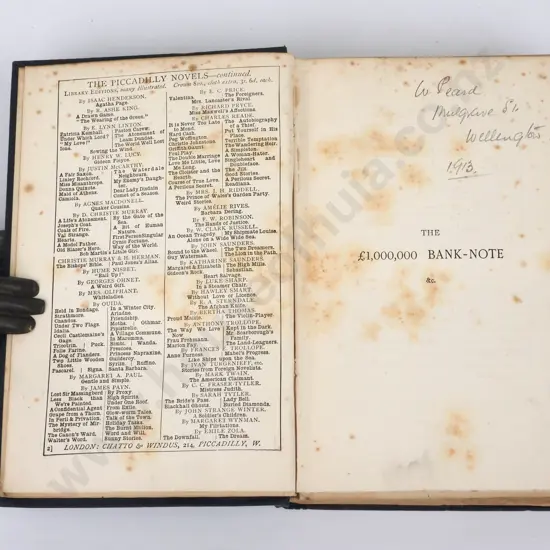 THE PICCADILLY NOVELS—continued.
LIBRARY EDITIONS, many illustrated. Crown 8vo, cloth extra, 3s. 6d. each.
By ISAAC HENDERSON.
Agatha Page.
By R. ASHE KING.
A Drawn Game
"The Wearing of the Green."
By E. LYNN LINTON.
Patricia Kemball. Paston Carew.
Under which Lord? The Atonement of
"My Love!" Leam Dundas.
Ione. The World Well Lost
Sowing the Wind.
By HENRY W. LUCY.
Gideon Fleyce.
By JUSTIN McCARTHY.
A Fair Saxon. The Waterdale
Linley Rochford. Neighbours.
Miss Misanthrope. My Enemy's Daugh-
Donna Quixote ter.
Maid of Athens. Dear Lady Disdain
Camiola. Comet of a Season.
By AGNES MACDONELL.
Quaker Cousins.
By D. CHRISTIE MURRAY.
A Life's Atonement. By the Gate of the
Joseph's Coat. Sea.
Coals of Fire. A Bit of Human
Val Strange. Nature.
Hearts. First Person Singular
A Model Father. Cynic Fortune.
Old Blazer's Hero. The Way of the World.
Bob Martin's Little Girl.
By CHRISTIE MURRAY & H. HERMAN.
The Bishops' Bible. Paul Jones's Alias.
By HUME NISBET.
"Bail Up!"
By GEORGES OHNET.
A Weird Gift.
By MRS. OLIPHANT.
Whiteladies.
By OUIDA.
Held in Bondage. In a Winter City.
Strathmore. Ariadne.
Chandos. Friendship.
Under Two Flags. Moths.
Idalia. Pipistrello.
Cecil Castlemaine's A Village Commune.
Gage. In Maremma.
Tricotrin. Puck. Bimbi. Wanda.
Folle Farine. Frescoes.
A Dog of Flanders. Princess Napraxine.
Two Little Wooden Guilderoy.
Shoes. Syrlin. Ruffino.
Pascarel. Signa. Santa Barbara.
By MARGARET A. PAUL.
Gentle and Simple.
By JAMES PAYN.
Lost Sir Massingberd By Proxy.
Less Black than High Spirits
We're Painted. Under One Roof
A Confidential Agent From Exile.
Grape from a Thorn. Glow-worm Tales.
In Peril & Privation. Talk of the Town.
The Mystery of Mir- Holiday Tasks.
bridge. The Burnt Million.
The Canon's Ward. Word and Will.
Walter's Word. Sunny Stories.
By E. C. PRICE.
Valentina. The Foreigners.
Mrs. Lancaster's Rival.
By RICHARD PRYCE.
Miss Maxwell's Affections
By CHARLES READE.
It is Never Too Late The Autobiography
to Mend. of a Thief.
Hard Cash. Put Yourself in His
Peg Woffington. Place.
Christie Johnstone Terrible Temptation
Griffith Gaunt. The Wandering Heir.
Foul Play. A Simpleton.
The Double Marriage A Woman-Hater.
Love Me Little, Love Singleheart and
Me Long. Doubleface.
The Cloister and the The Jilt.
Hearth. Good Stories.
Course of True Love. A Perilous Secret.
Readiana.
By MRS. J. H. RIDDELL.
The Prince of Wales's Garden Party.
Weird Stories.
By AMÉLIE RIVES.
Barbara Dering.
By F. W. ROBINSON.
The Hands of Justice.
By W. CLARK RUSSELL.
An Ocean Tragedy. My Shipmate Louise.
Alone on a Wide Wide Sea.
By JOHN SAUNDERS.
Bound to the Wheel. The Two Dreamers.
Guy Waterman. The Lion in the Path.
By KATHARINE SAUNDERS.
Margaret & Elizabeth The High Mills.
Gideon's Rock. Sebastian.
Heart Salvage.
By LUKE SHARP.
In a Steamer Chair.
By HAWLEY SMART.
Without Love or Licence
By R. A. STERNDALE.
The Afghan Knife.
By BERTHA THOMAS.
Proud Maisie. The Violin-Player
By ANTHONY TROLLOPE.
The Way We Live Kept in the Dark.
Now Mr. Scarborough's
Frau Frohmann. Family.
Marion Fay. The Land-Leaguers.
By FRANCES E. TROLLOPE.
Anne Furness Mabel's Progress.
Like Ships upon the Sea.
By IVAN TURGENIEFF, &c.
Stories from Foreign Novelists.
By MARK TWAIN.
The American Claimant.
By C. C. FRASER-TYTLER.
Mistress Judith.
By SARAH TYTLER.
The Bride's Pass. Lady Bell.
Blackhall Ghosts Buried Diamonds.
By JOHN STRANGE WINTER.
A Soldier's Children.
By MARGARET WYNMAN.
My Flirtations.
By EMILE ZOLA.
The Downfall. The Dream.
2] LONDON: CHATTO & WINDUS, 214, PICCADILLY, W.
W Peard
Mulgrave St
Wellington
1913.
THE
£1,000,000 BANK-NOTE
&c.